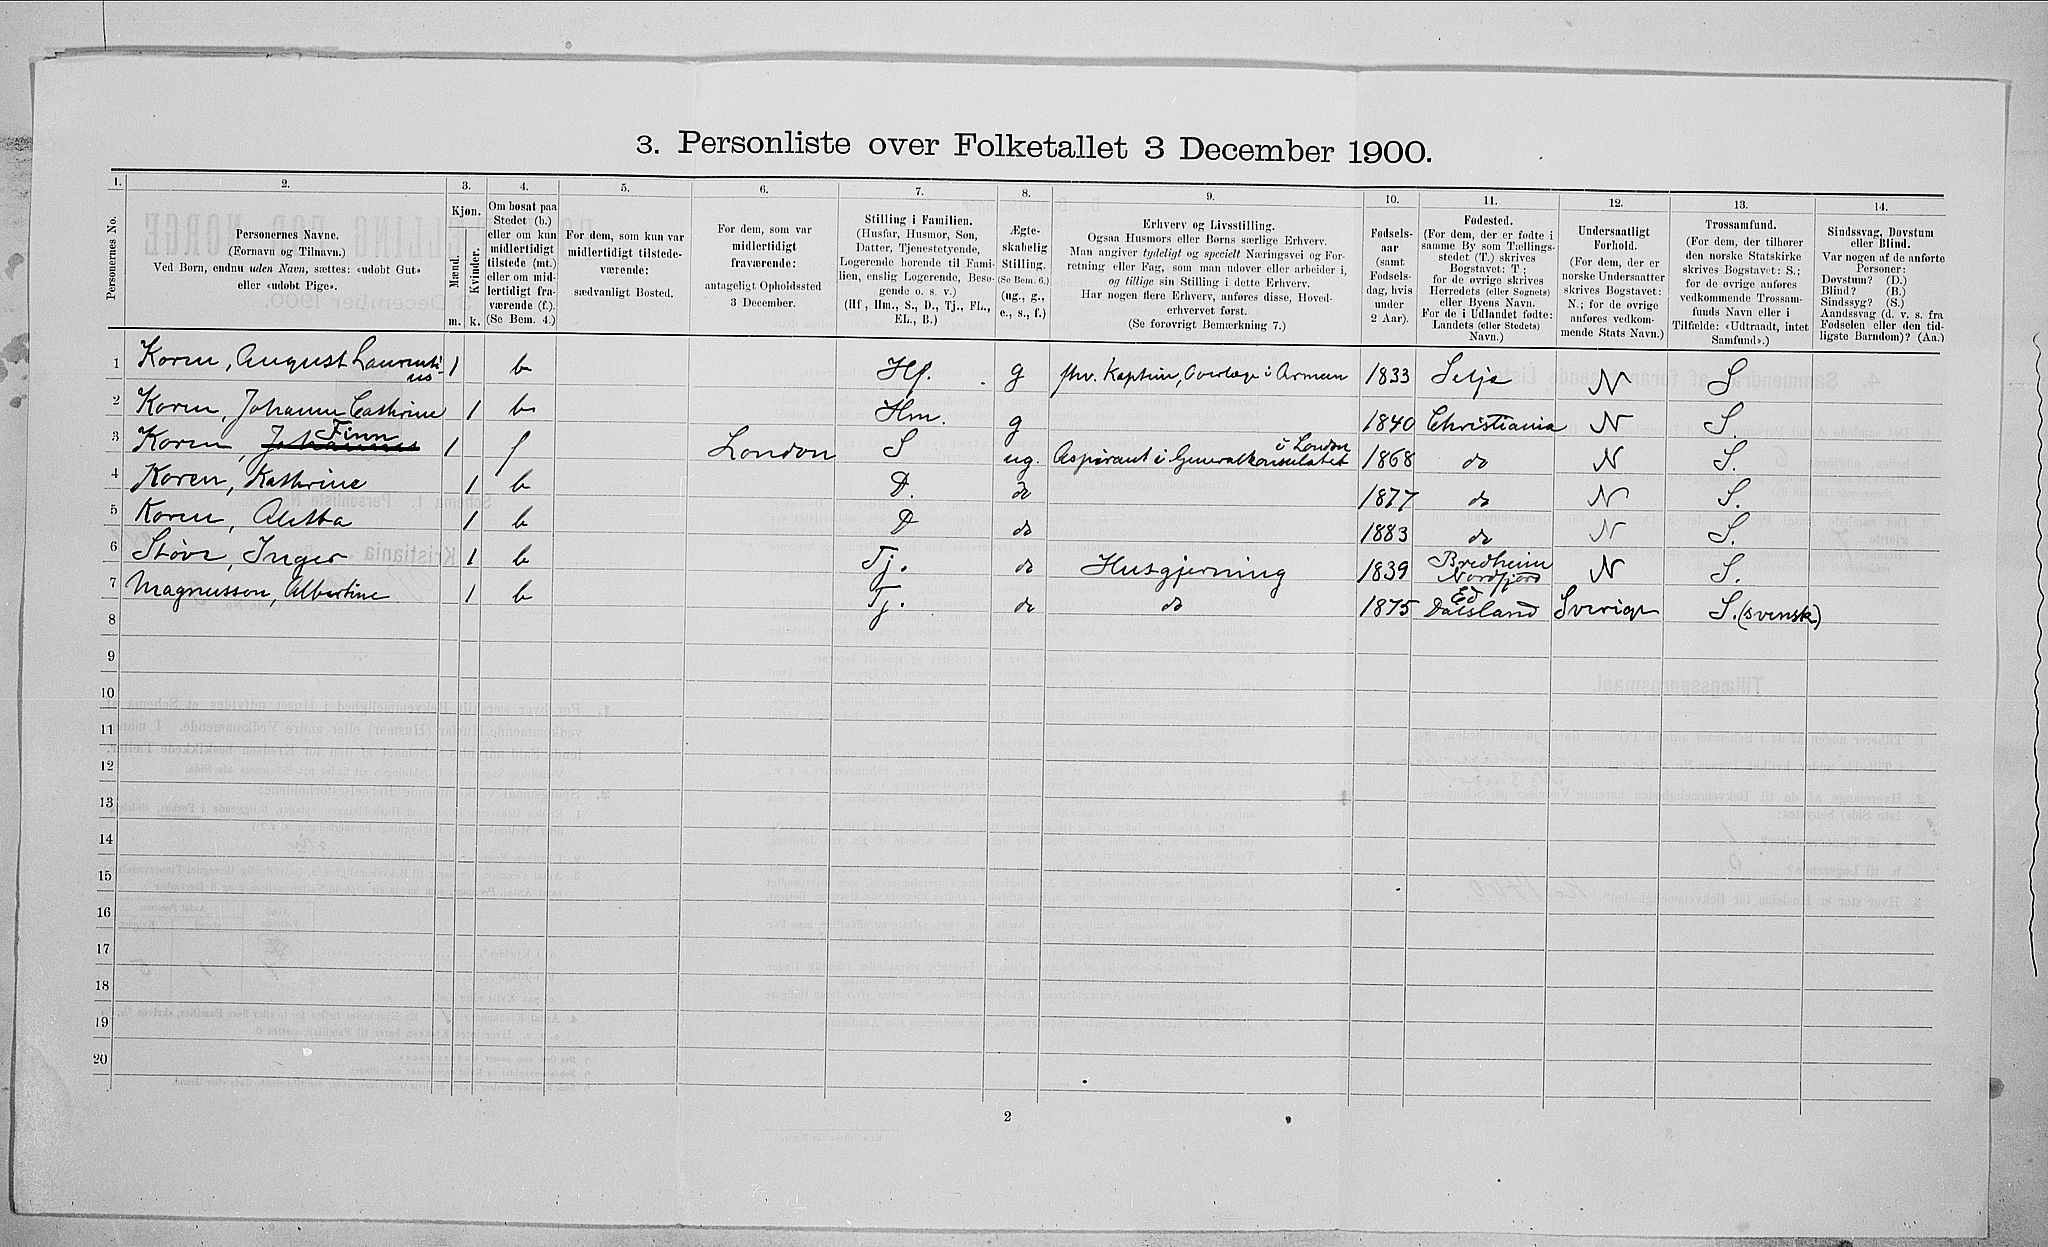 3. Personliste over Folketallet 3 December 1900.
1. 2. 3. 4. 5. 6. 7. 8. 9. 10. 11. 12. 13. 14.
Personernes No.
Personernes Navne.
(Fornavn og Tilnavn.)
Ved Børn, endnu uden Navn, sættes: «udøbt Gut»
eller «udøbt Pige».
Kjøn.
Mænd.
Kvinder.
m. k.
Om bosat paa
Stedet (b.)
eller om kun
midlertidigt
tilstede (mt.)
eller om mid-
lertidigt fra-
værende (f.).
(Se Bem. 4.)
For dem, som kun var
midlertidigt tilstede-
værende:
sædvanligt Bosted.
For dem, som var
midlertidigt
fraværende:
antageligt Opholdssted
3 December.
Stilling i Familien.
(Husfar, Husmor, Søn,
Datter, Tjenestetyende,
Logerende hørende til Fami-
lien, enslig Logerende, Besø-
gende o. s. v.)
(Hf, Hm., S., D., Tj., FL.,
EL., B.)
Ægte-
skabelig
Stilling.
(Se Bem. 6.)
(ug., g.,
e., s., f.)
Erhverv og Livsstilling.
Ogsaa Husmors eller Børns særlige Erhverv.
Man angiver tydeligt og specielt Næringsvei og For-
retning eller Fag, som man udøver eller arbeider i,
og tillige sin Stilling i dette Erhverv.
Har nogen flere Erhverv, anføres disse, Hoved-
erhvervet først.
(Se forøvrigt Bemærkning 7.)
Fødsels-
aar
(samt
Fødsels-
dag, hvis
under
2 Aar).
Fødested.
(For dem, der er fødte i
samme By som Tællings-
stedet (T.) skrives
Bogstavet: T;
for de øvrige skrives
Herredets (eller Sognets)
eller Byens Navn.
For de i Udlandet fødte:
Landets (eller Stedets)
Navn.)
Undersaatligt
Forhold.
(For dem, der er
norske Undersaatter
skrives Bogstavet:
N.; for de øvrige
anføres vedkom-
mende Stats Navn.)
Trossamfund.
(For dem, der tilhører
den norske Statskirke
skrives Bogstavet: S.;
for de øvrige anføres
vedkommende Trossam-
funds Navn eller i
Tilfælde: «Udtraadt, intet
Samfund».)
Sindssvag, Døvstum
eller Blind.
Var nogen af de anførte
Personer:
Døvstum? (D.)
Blind? (B.)
Sindssyg? (S.)
Aandssvag (d. v. s. fra
Fødselen eller den tid-
ligste Barndom)? (Aa.)
1 Koren, August Laurenti- 1 b Hf. g fhv. Kaptein, Overlæge i Armeen 1833 Selje N S
us
2 Koren, Johanne Cathrine 1 b Hm. g 1840 Christiania N S.
Finn i London
3 Koren, Johannes 1 f London S ug. Aspirant i Generalkonsulatet 1868 do N S.
4 Koren, Kathrine 1 b D. do 1877 do N S.
5 Koren, Aletta 1 b D do 1883 do N S.
6 Støve, Inger 1 b Tj. do Husgjerning 1839 Bredheim N S.
Nordfjord
7 Magnusson, Albertine 1 b Tj. do do 1875 Ed Sverige S. (svensk)
Dalsland
8
9
10
11
12
13
14
15
16
17
18
19
20
2